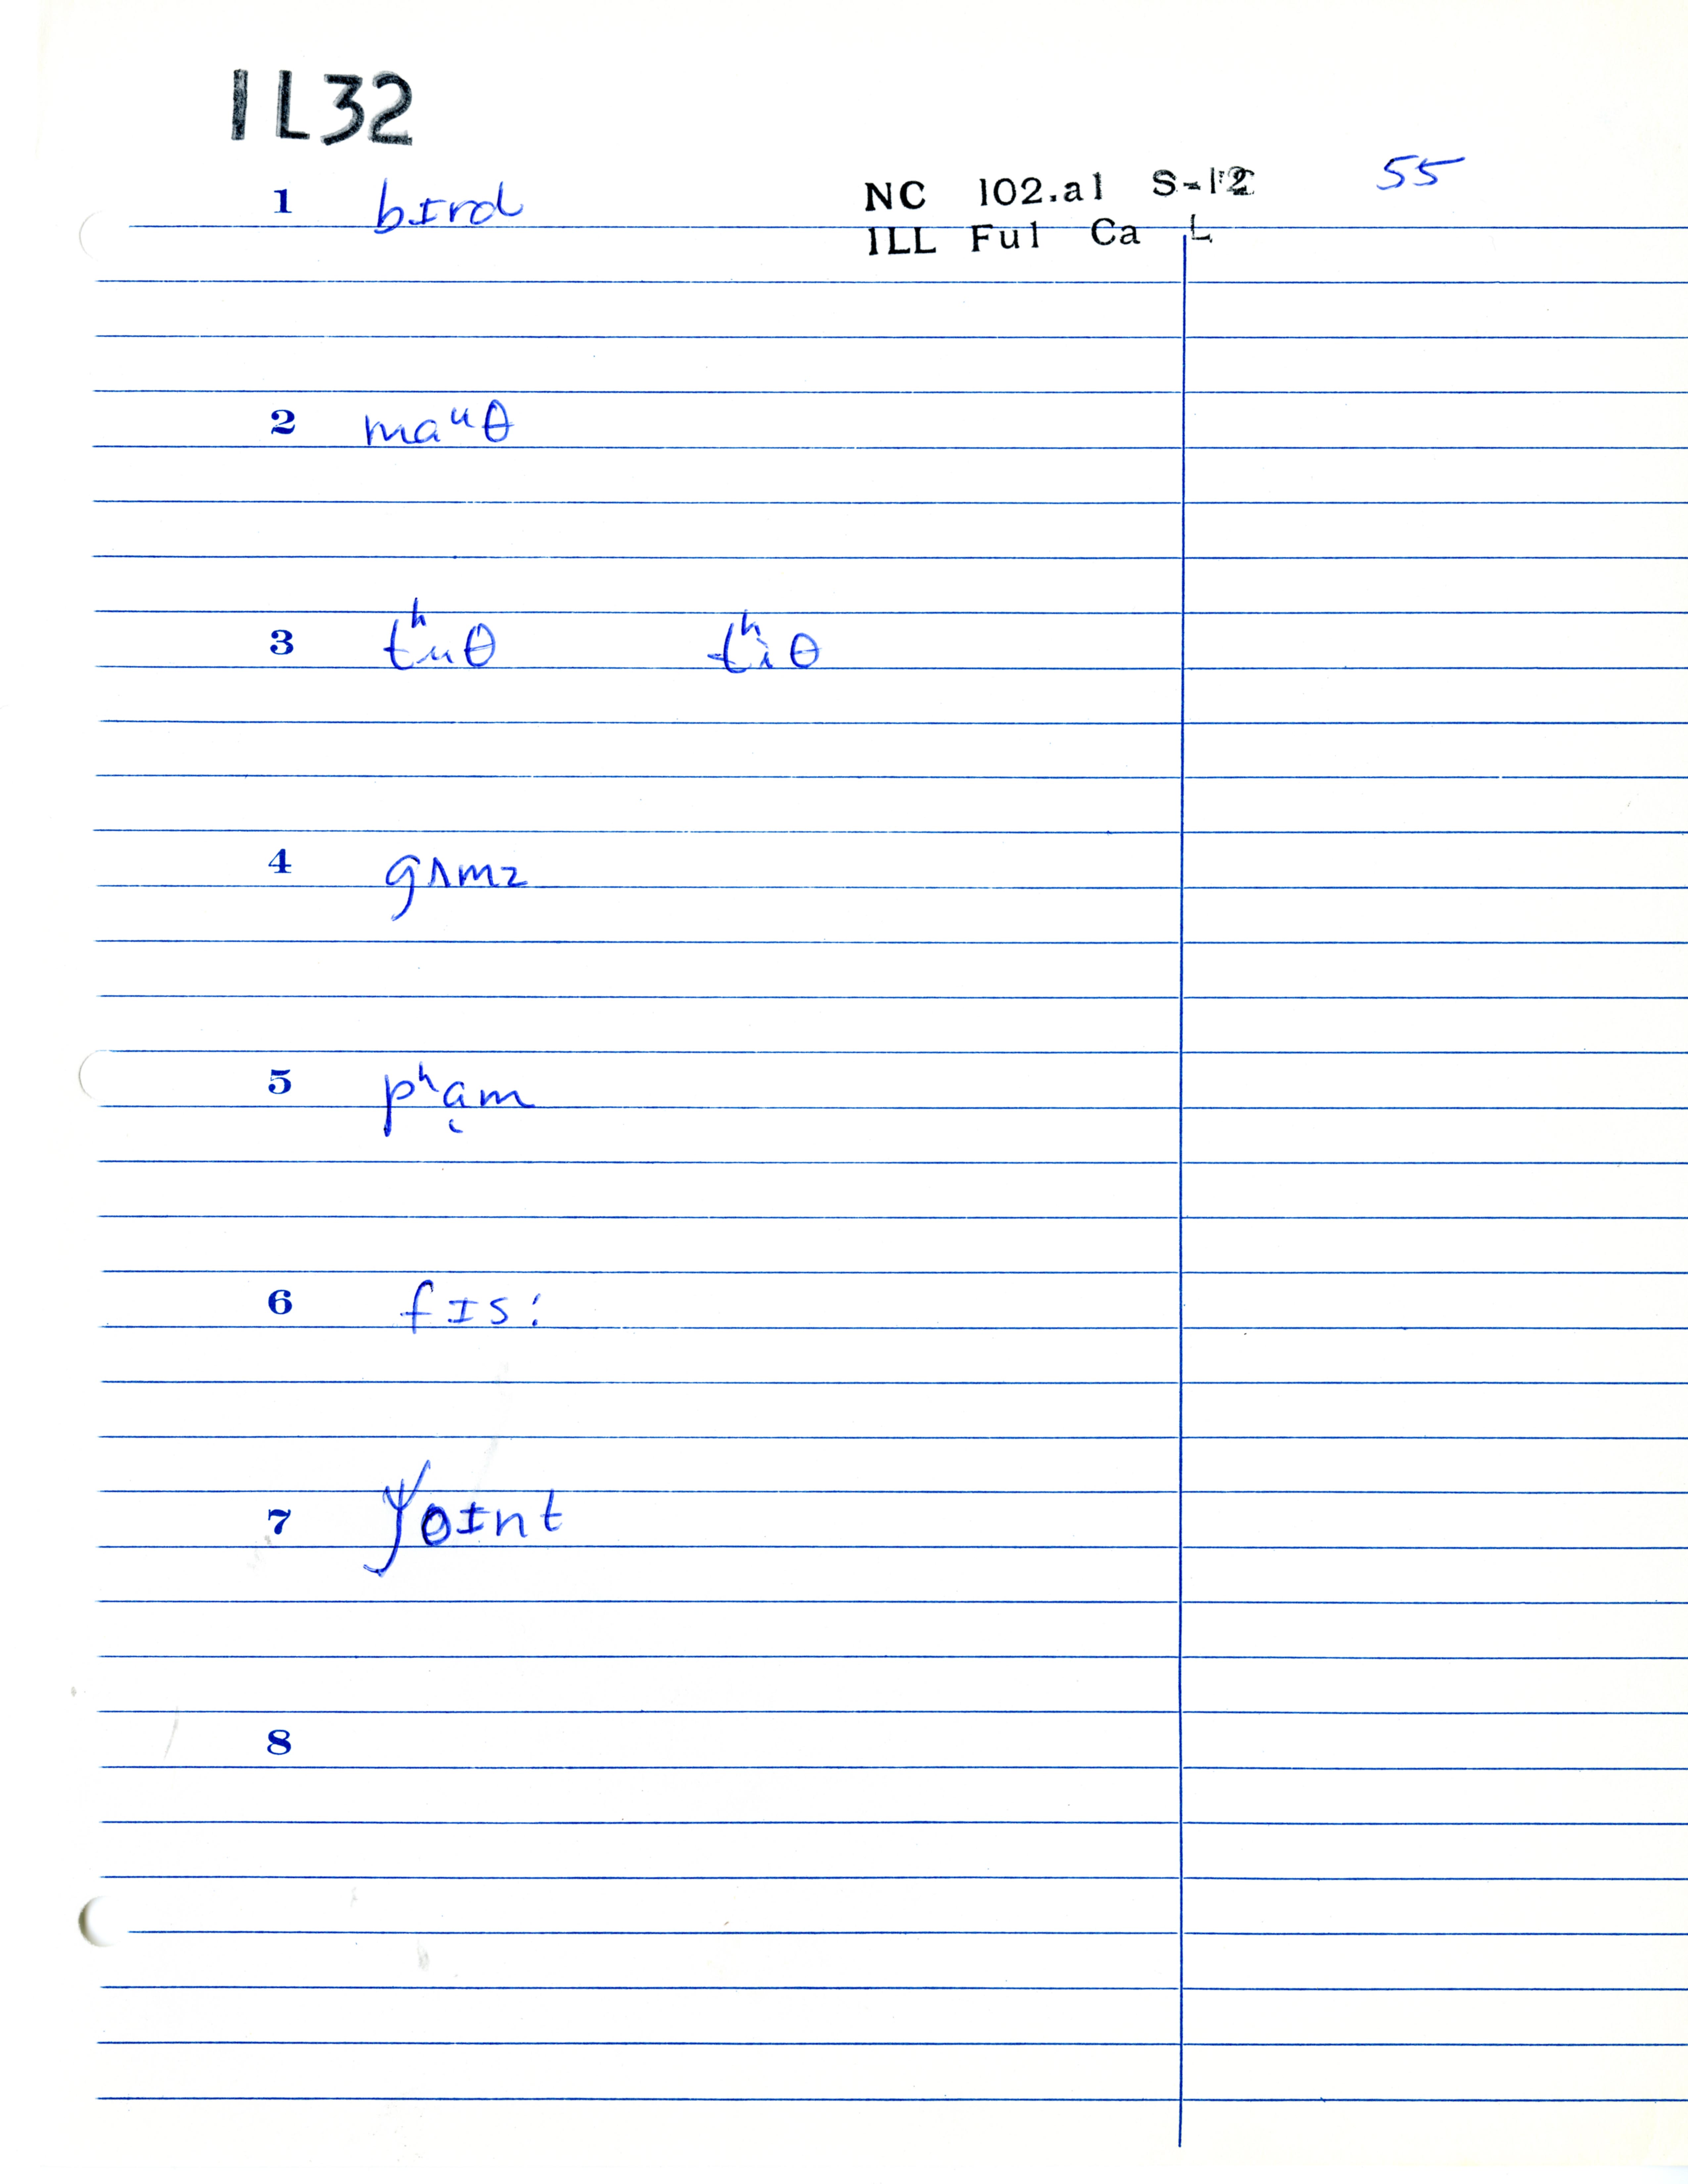 IL32
NC 102.a1 S-12 55
1 bɪrd
ILL Ful Ca L
2 maᵘθ
3 tʰuθ tʰiθ
4 gʌmz
5 pʰa̜m
6 fɪs:
7 ɪnt
8